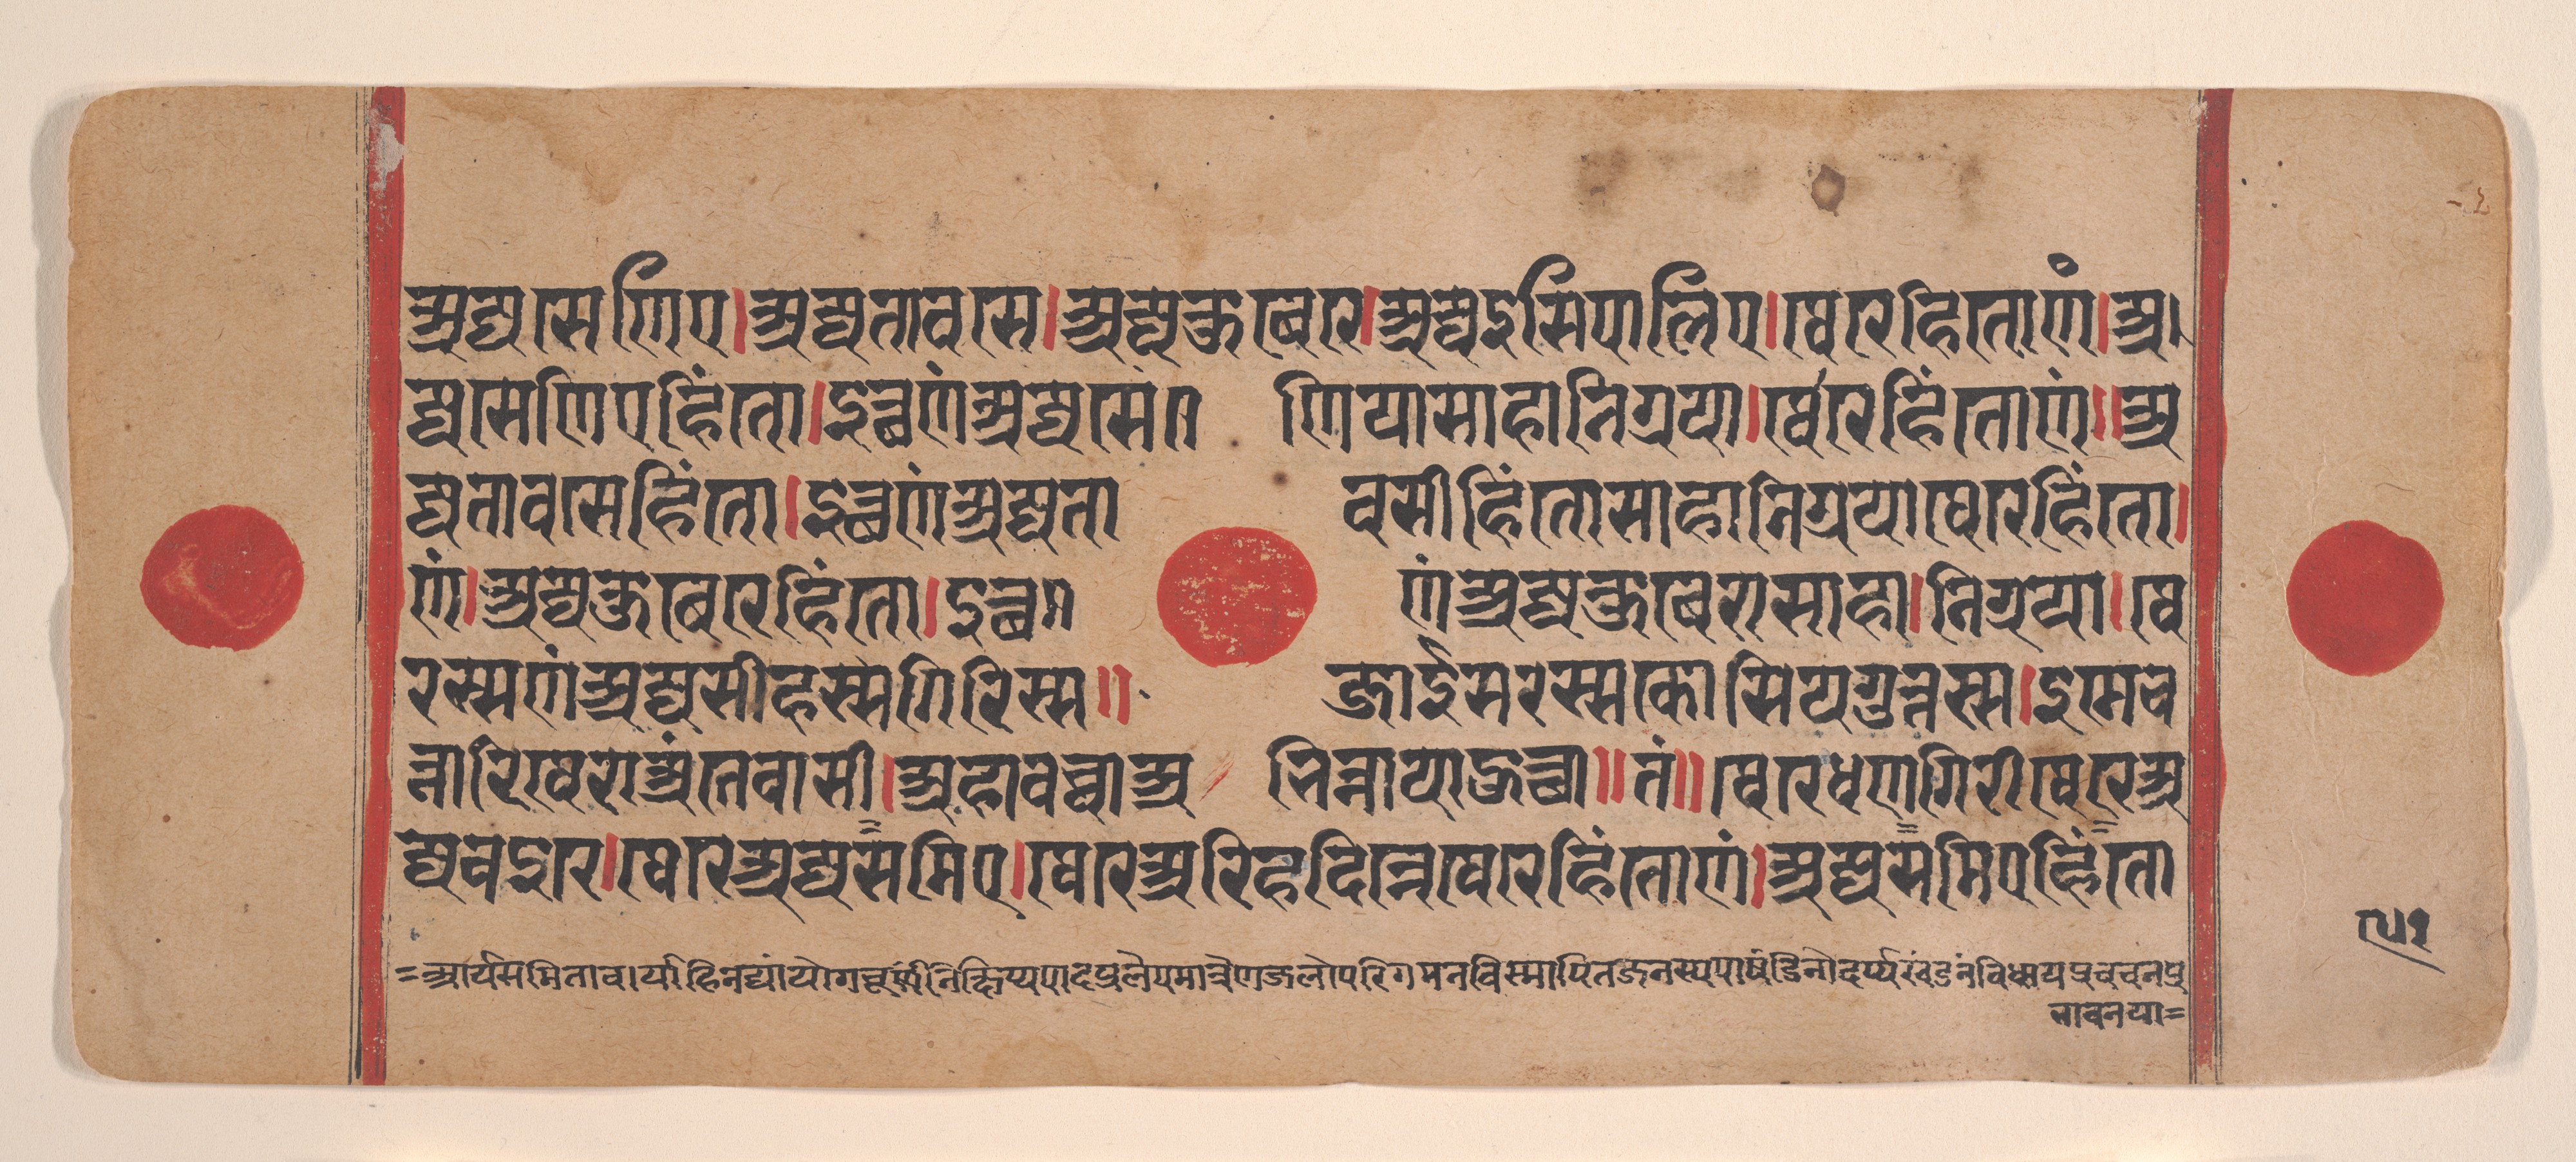 अज्जसेणिए।अज्जतावसे।अज्जकुबेरे।अज्जइसिपालिए।थेरेहिंतोणं।अ
ज्जसेणिएहिंतो।इत्थणंअज्जसेणियासाहानिग्गया।थेरेहिंतोणं॥अ
ज्जतावसेहिंतो।इत्थणंअज्जतावसीहिंतोसाहानिग्गयाथेरेहिंतो।
णं।अज्जकुबेरेहिंतो।इत्थणंअज्जकुबेरासाहा।निग्गया।थे
रस्सणंअज्जसीहस्सगिरिस्स॥जाईसरस्सकोसियगुत्तस्स।इमेच
त्तारिथेराअंतेवासी।अहावच्चाअभिन्नायाहुत्था॥तं॥थेरेधणगिरीथेरेअ
ज्जवइरे।थेरेअज्जसमिए।थेरेअरिहदिन्नेथेरेहिंतोणं।अज्जसमिएहिंतो
=आर्यसमितावार्याहिनद्यांयोगचूर्णंनिक्षिप्यपादप्रलेपमात्रेणजलोपरिगमनविस्मापितजनस्यपाषंडिनोदर्प्पखंडनंविधायप्रवचनप्र
भावनया=
५१